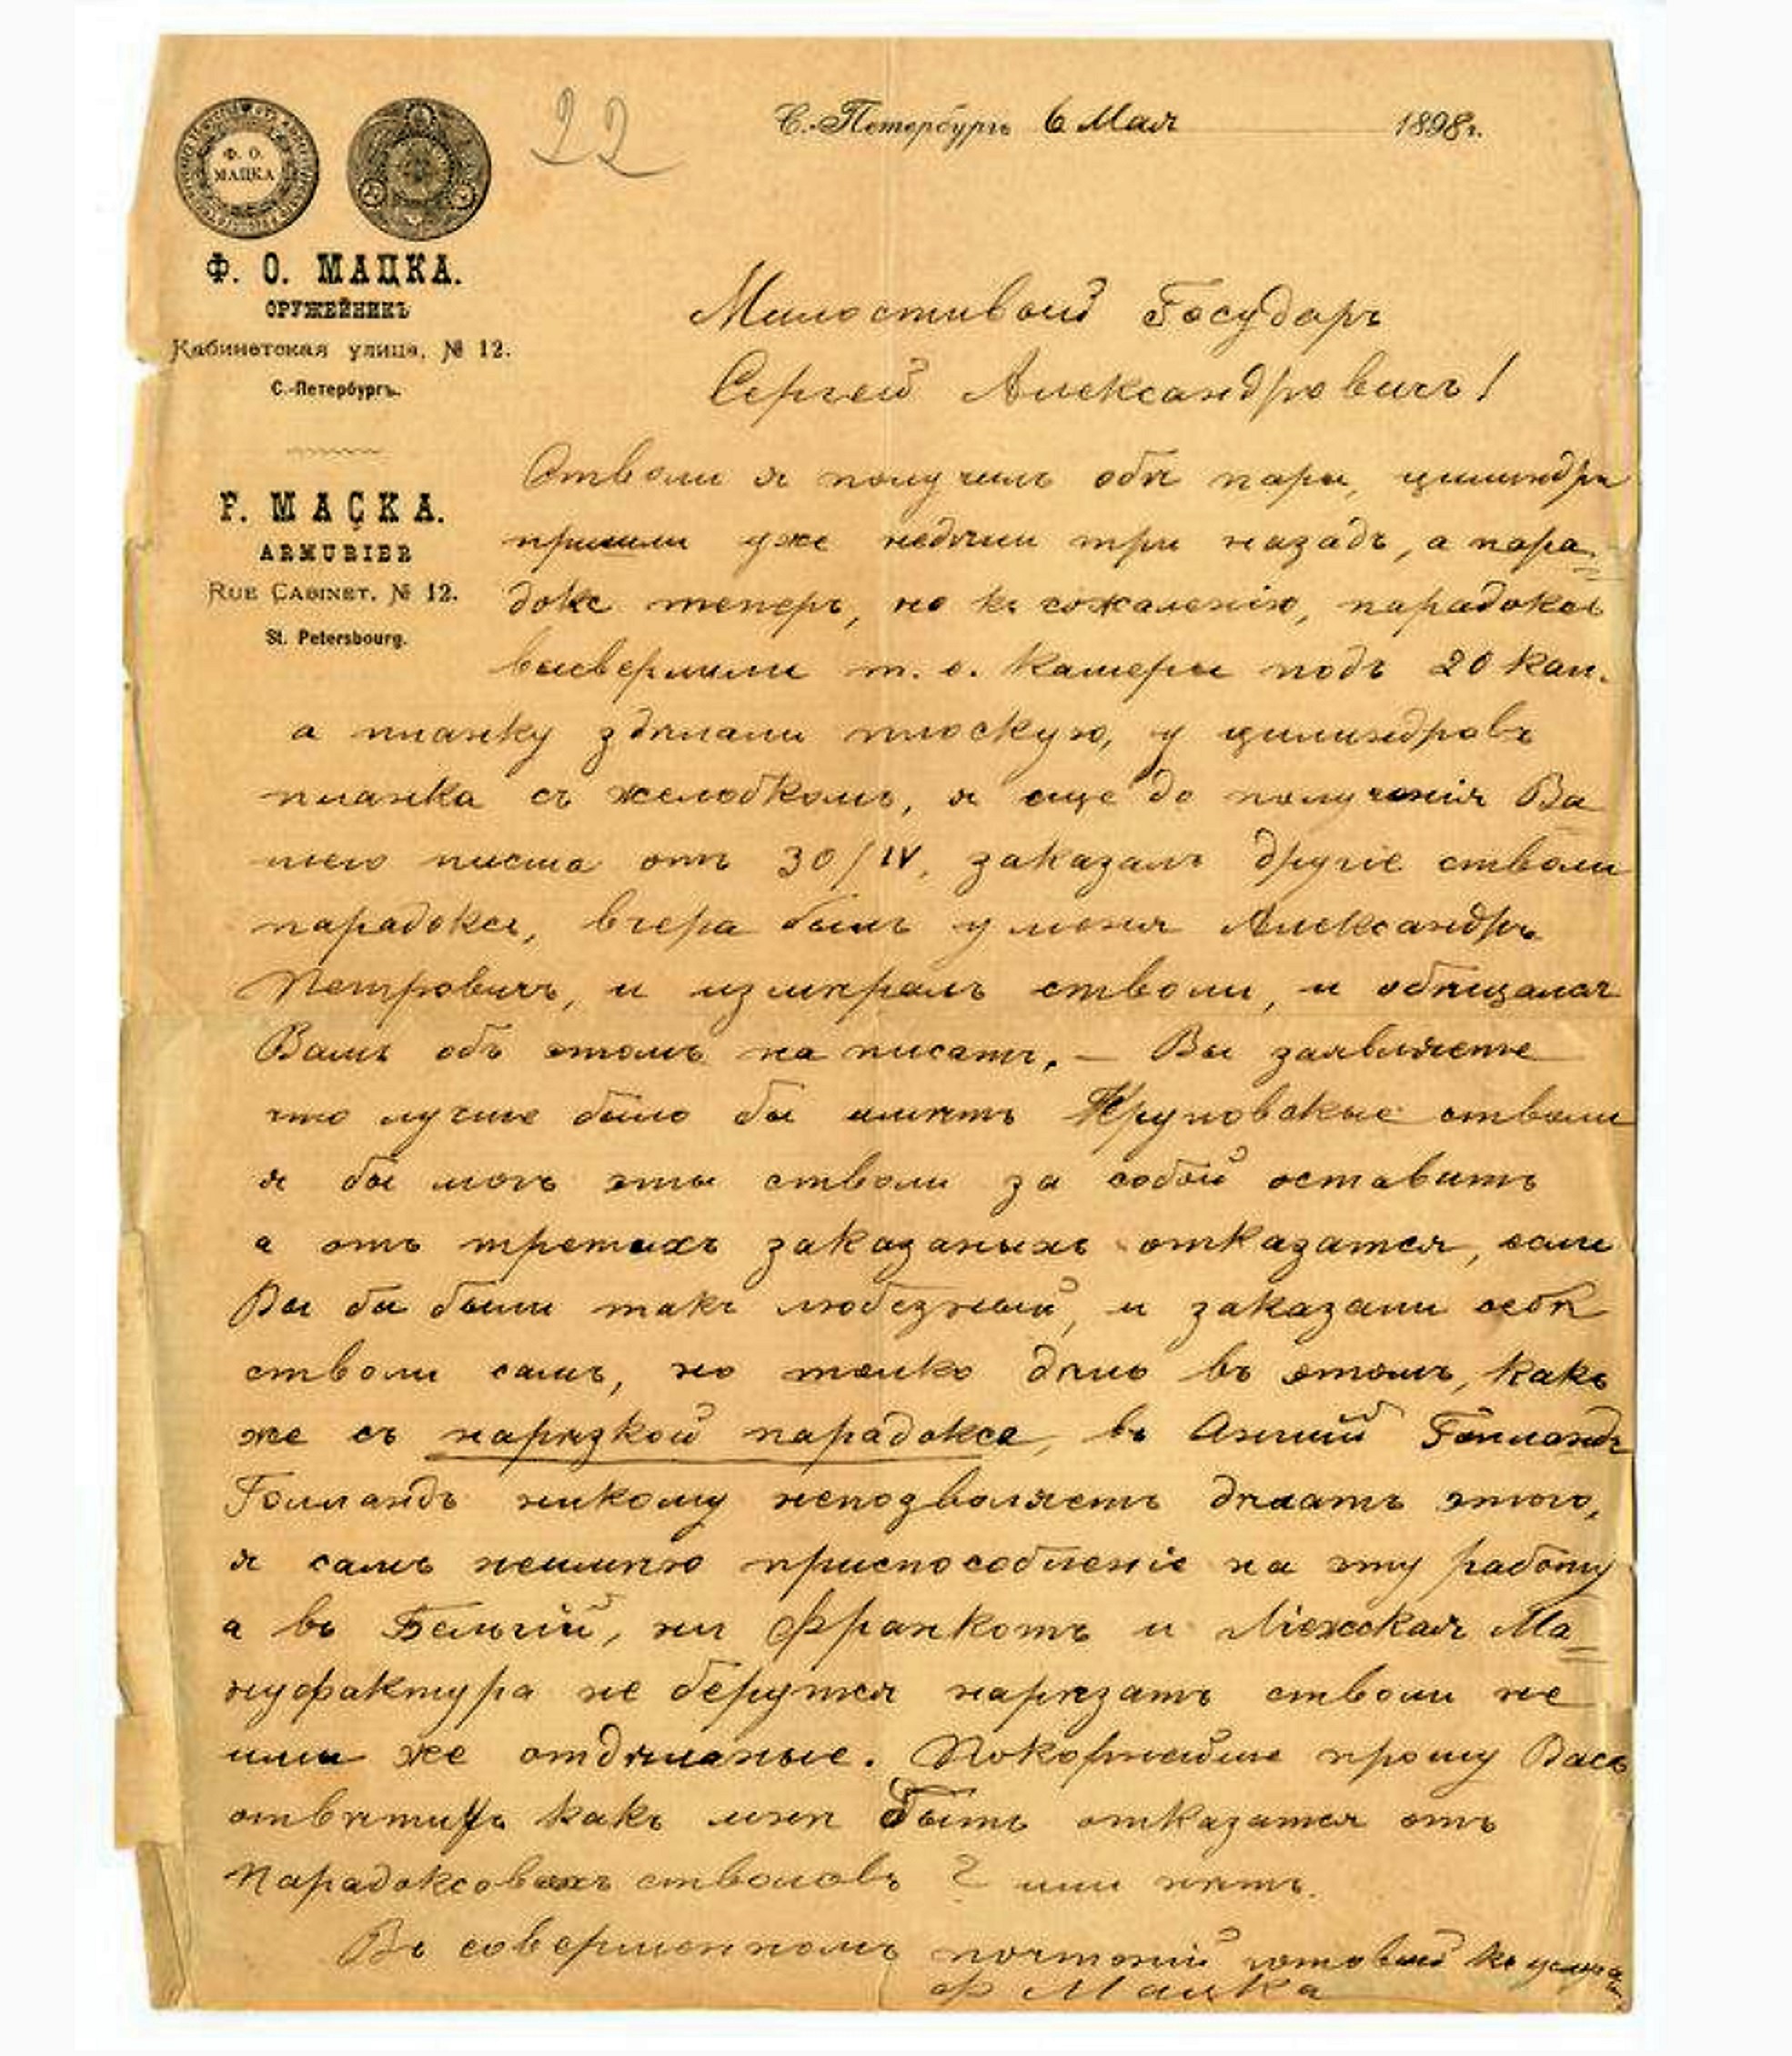 22
С.-Петербургъ 6 Мая 1898 г.
Ф. О. МАЦКА
Ф. О. МАЦКА.
ОРУЖЕЙНИКЪ
Кабинетская улица, № 12.
С.-Петербургъ.
F. MAÇKA.
ARMURIER
RUE CABINET. № 12.
St. Petersbourg.
Милостивый Государь
Сергей Александровичъ!
Стволи я получилъ обѣ пары, цилиндры
пришли уже недѣли три назадъ, а пара-
доксъ теперь, но къ сожаленію, парадоксъ
высверлили т. е. камеры подъ 20 кал.
а планку здѣлали плоскую, у цилиндровъ
планка съ желобкомъ, я еще до полученія Ва
шего писма отъ 30/IV, заказалъ другіе стволи
парадоксъ, вчера былъ у меня Александръ
Петровичъ, и измѣралъ стволи, и обѣщался
Вамъ объ этомъ на писать. — Вы заявляете
что лучше было бы имѣть Круповские стволи
я бы могъ эты стволи за собой оставить
а отъ третыхъ заказаныхъ отказатся, если
Вы бы были такъ любезный, и заказали себѣ
стволи самъ, но толко дѣло въ этомъ, какъ
же съ нарѣзкой парадокса, въ Англий Голландъ
Голландъ никому непозволяетъ дѣлать этого,
я самъ неимѣю приспособленіе на эту работу
а въ Бельгій, ни Франкотъ и Ліежская Ма-
нуфактура не берутся нарѣзать стволи не
ими же отдѣланые. Покорнейше прошу Васъ
отвѣтить какъ мнѣ быть отказатся отъ
Парадоксовыхъ стволовъ ? или нѣтъ.
Въ совершенномъ почтеній готовый къ услугамъ
Ф Мацка